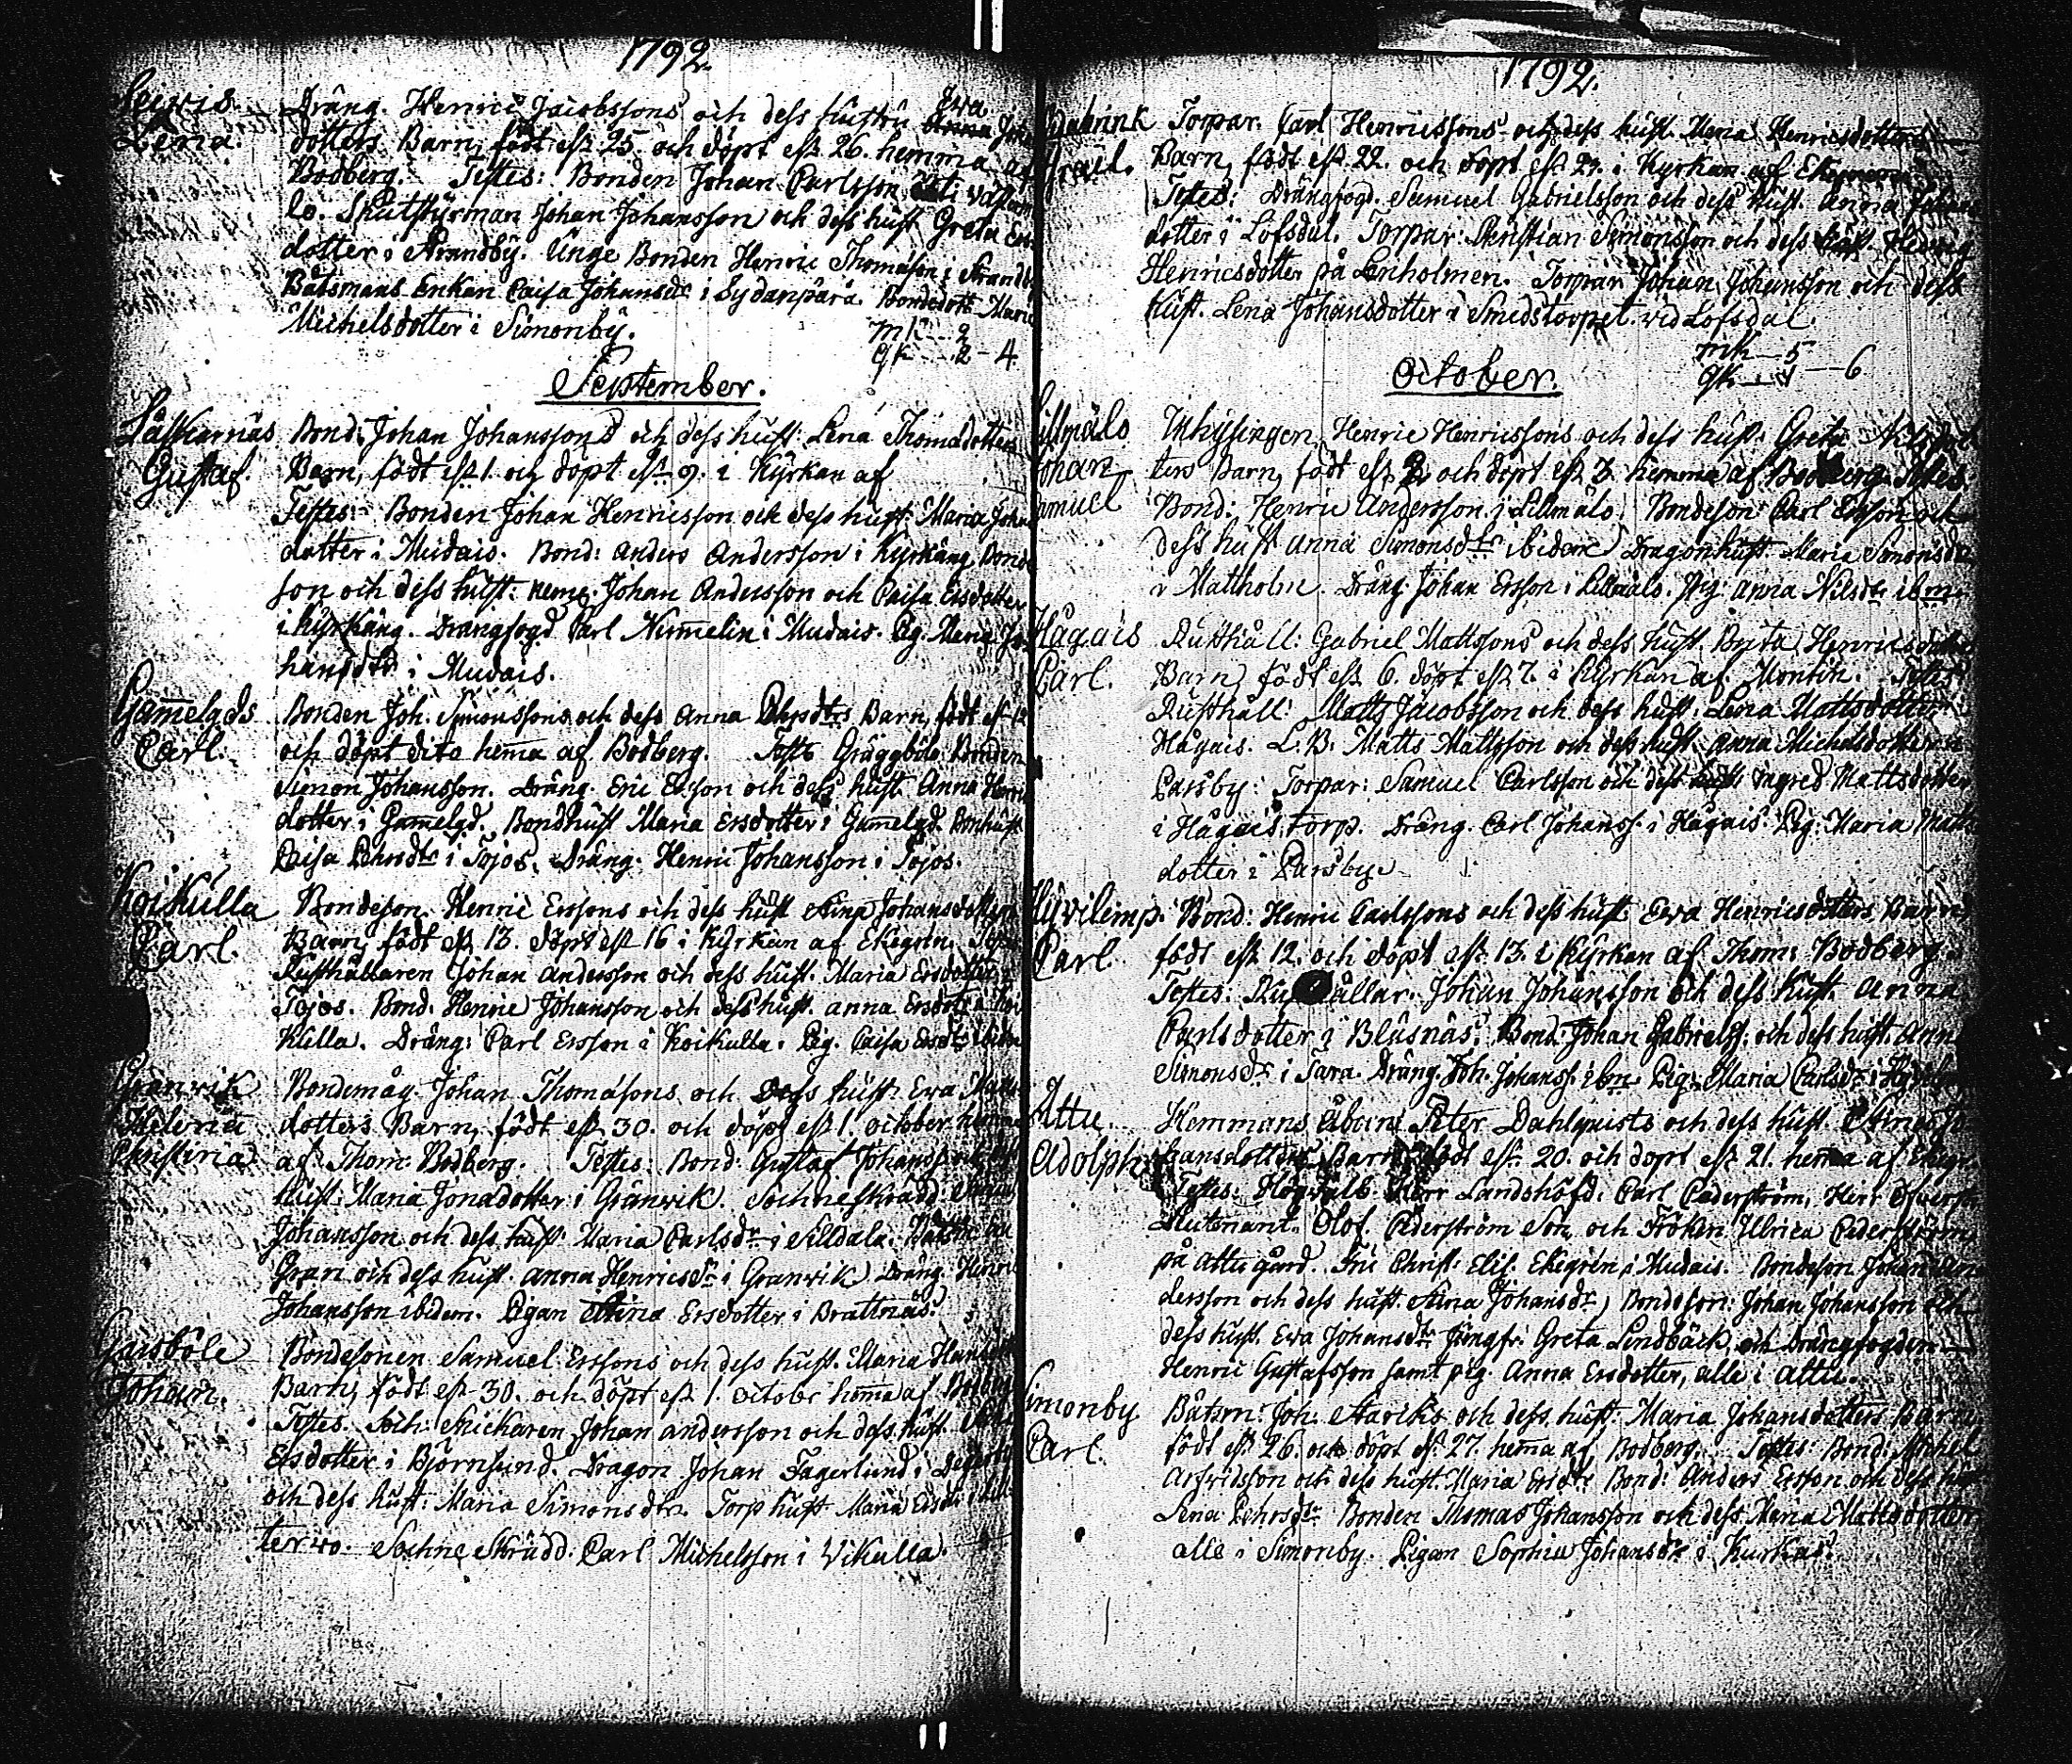 1792.
Lena. Dräng. Henric Jacobssons och dess hustru Ewa Joh
dotters Barn, född est 25. och döpt est 26. hemma af
Bodberg. Testes: Bonden Johan Carlsson
lo. Skutstyrman Johan Johansson och dess hust Greta Ers
dotter i Strandby. Unge Bonden Henric Thomasson i Strandby
Båtsmans Enkan Caisa Johansdr i Sydänpärä. Bondedott Maria
Michelsdotter i Simonby. mk 2
qk 2 - 4
September.
Bond: Johan Johanssons och dess hust: Lena Thomasdotters
Gustaf. Barn, född est 1. och döpt est 2. i Kyrkan af
Testes: Bonden Johan Henricsson och dess hust: Maria Johans
dotter i Mudais. Bond: Anders Andersson i Kyrkäng Bonde
son och dess hust: neml. Johan Andersson och Caisa Ersdotter
i Kyrkäng. Drängfogd Carl Nimelin i Mudais. Pig. Maria Jo
hansdtr i Mudais.
Gamelgds Bonden Joh. Simonssons och dess Anna Ehrsdtrs Barn, född est
Carl. och döpt dito hema af Bodberg. Test: Gräggböle Bonden
Simon Johansson. Dräng. Eric Ersson och dess hust Anna Henrics
dotter i Gamelgd. Bondhust Maria Ersdotter i Gamelgd. Bonhust
Caisa Ehrsdtr i Tojos. Dräng. Henric Johansson i Tojos.
Koikulla Bondeson. Henric Erssons och dess hust Stina Johansdotters
Carl. Barn, född est 13. döpt est 16 i Kyrkan af Ekegren. Testes
Rusthållaren Johan Andersson och dess hust. Maria Ersdotter i
Tojos. Bond. Henric Johansson och dess hust. Anna Ersdotr i Koi
Kulla. Dräng: Carl Ersson i Koikulla. Pig. Caisa Ersdtr ibidem
Granvik Bondemåg. Johan Thomasons och Dess hust: Ewa
Helena dotters Barn, född est 30. och döpt est 1. october hemma
Christina af Thom: Bodberg. Testes: Bond: Gustaf Johanss och dess
Hust: Maria Jonadotter i Granvik. Sochneskrädd:
Johansson och dess hust: Maria Carlsdr i Silldala.
Gran och dess hust. Anna Henricsdr i Granvik Dräng. Henric
Johansson ibidem. Pigan Stina Ersdotter i Brattnäs.
Gaisböle Bondesonen Samuel Erssons och dess hust. Maria Hansdr
Johan. Barn, född est 30. och döpt est 1. octobr hema af Bodberg
Testes. Soch: Snickaren Johan andersson och dess hust.
Ersdotter i Björnsund. Dragon Johan Fagerlund i
och dess hust: Maria Simonsdtr. Torp hust Maria Ersdr i
terwo. Sochne Skrädd. Carl Michelsson i Vikulla.
1792.
Torpar. Carl Henricssons och dess hust. Maria Henricsdotters
Israel. Barn, född est 22. och döpt est 23. i Kyrkan af Ekegren
Testes: Drängfogd. Samuel Gabrielsson och dess hust. Anna Johans
dotter i Lofsdal. Torpar: Christian Simonsson och dess hust. Hedvig
Henricsdotter på Lenholmen. Torpar Johan Johansson och dess
hust. Lena Johansdotter i Smedstorpet vid Lofsdal.
mk 5
qk 1 - 6
October.
Lillmälo Inhysingen Henric Henricssons och dess hust. Greta Nilsdot
Johan ters Barn född est 2. och döpt est 3. hemma af Bodberg. Testes
Samuel Bond: Henric Andersson i Lillmälo. Bondeson Carl Ersson och
dess hust Anna Simonsdtr ibidem Dragonhust. Maria Simonsdr
i Mattholm. Dräng Johan Ersson i Lillmälo. Pig: Anna Nilsdr ibm.
Hågais Rusthåll: Gabriel Mattssons och dess hust. Brita Henricsdotters
Carl. Barn, född est 6. döpt est 7. i Kyrkan af Montin. Testes
Rusthåll: Matts Jacobsson och dess hust. Lena Mattsdotter
Hågais. L.B. Matts Mattsson och dess hust. Anna Michelsdotter i
Parsby: Torpar: Samuel Carlsson och dess hust Ingred Mattsdotter
i Hågais torp. Dräng. Carl Johanss. i Hågais Pig: Maria Matts
dotter i Parsby.
Hyvilemp. Bond: Henric Carlssons och dess hust Ewa Henricsdotters Barn,
Carl född est 12. och döpt est 13. i Kyrkan af Thom: Bodberg.
Testes: Rusthållar. Johan Johansson och dess hust. Anna
Carlsdotter i Bläsnäs. Bond: Johan Gabrielss. och dess hust. Ann
Simonsdr i Tara. Dräng. Joh. Johanss. ibm. Pig: Maria Carlsdr i
Attu. Hemmans Åboen Peter Dahlquists och dess hust. Stina Jo
Adolph hansdotters Barn född est 20. och döpt est 21. hema af Ekegr
Testes: Högvälb Herr Landshöfd: Carl Cederström, Herr Öfverste
Lieutenant Olof Cederström Son, och Fröken Ulrica Cederström
på Attu gård. Fru Christ: Elis. Ekegren i Mudais. Bondeson Johan An
dersson och dess hust. Stina Johansdr, Bondeson: Johan Johansson och
dess hust. Ewa Johansdtr Jungfr: Greta Lindbäck, och Drängfogden
Henric Gustafsson samt pig. Anna Ersdotter, alle i Attu.
Simonby Båtsm: Joh: Starcks och dess hust: Maria Johansdotters Barn
Carl. född est 26. och döpt est 27. hema af Bodberg. Testes: Bond: Michel
Arfvidsson och dess hust. Maria Ersdtr Bond: Anders Ersson och dess hust
Lena Ehrsdr Bonden Thomas Johansson och dess Maria Mattsdotter
alle i Simonby. Pigan Sophia Johansdr i Kurkas.